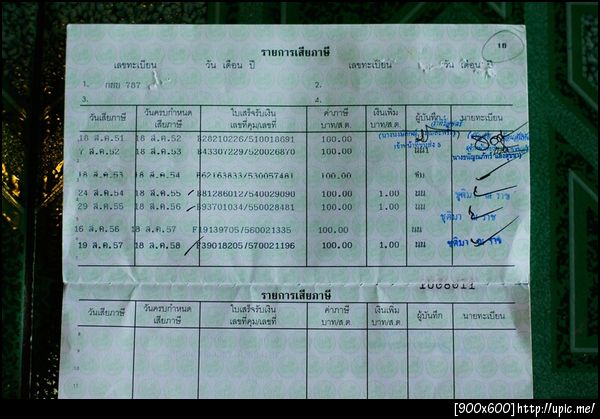 18
รายการเสียภาษี
เลขทะเบียน วัน เดือน ปี เลขทะเบียน วัน เดือน ปี
1. กยย 787 2.
3. 4.
วันเสียภาษี วันครบกำหนดเสียภาษี ใบเสร็จรับเงินเลขที่คุม/เลขที่ ค่าภาษี บาท/ส.ต. เงินเพิ่ม บาท/ส.ต. ผู้บันทึก นายทะเบียน
18 ส.ค.51 18 ส.ค.52 E28210226/510018691 100.00
7 ส.ค.52 18 ส.ค.53 E43307229/520026870 100.00 นนา
18 ส.ค.53 18 ส.ค.54 E62163833/530057481 100.00
24 ส.ค.54 18 ส.ค.55 E81286012/540029090 100.00 1.00 นน ชุติมา ณ ราช
29 ส.ค.55 18 ส.ค.56 E93701034/550028481 100.00 1.00 นน ชุติมา ณ ราช
16 ส.ค.56 18 ส.ค.57 F19139705/560021335 100.00 นน
19 ส.ค.57 18 ส.ค.58 F39018205/570021196 100.00 1.00 นน ชุติมา ณ ราช
รายการเสียภาษี
วันเสียภาษี วันครบกำหนดเสียภาษี ใบเสร็จรับเงินเลขที่คุม/เลขที่ ค่าภาษี บาท/ส.ต. เงินเพิ่ม บาท/ส.ต. ผู้บันทึก นายทะเบียน
8
9
10
11
[900x600]http://upic.me/